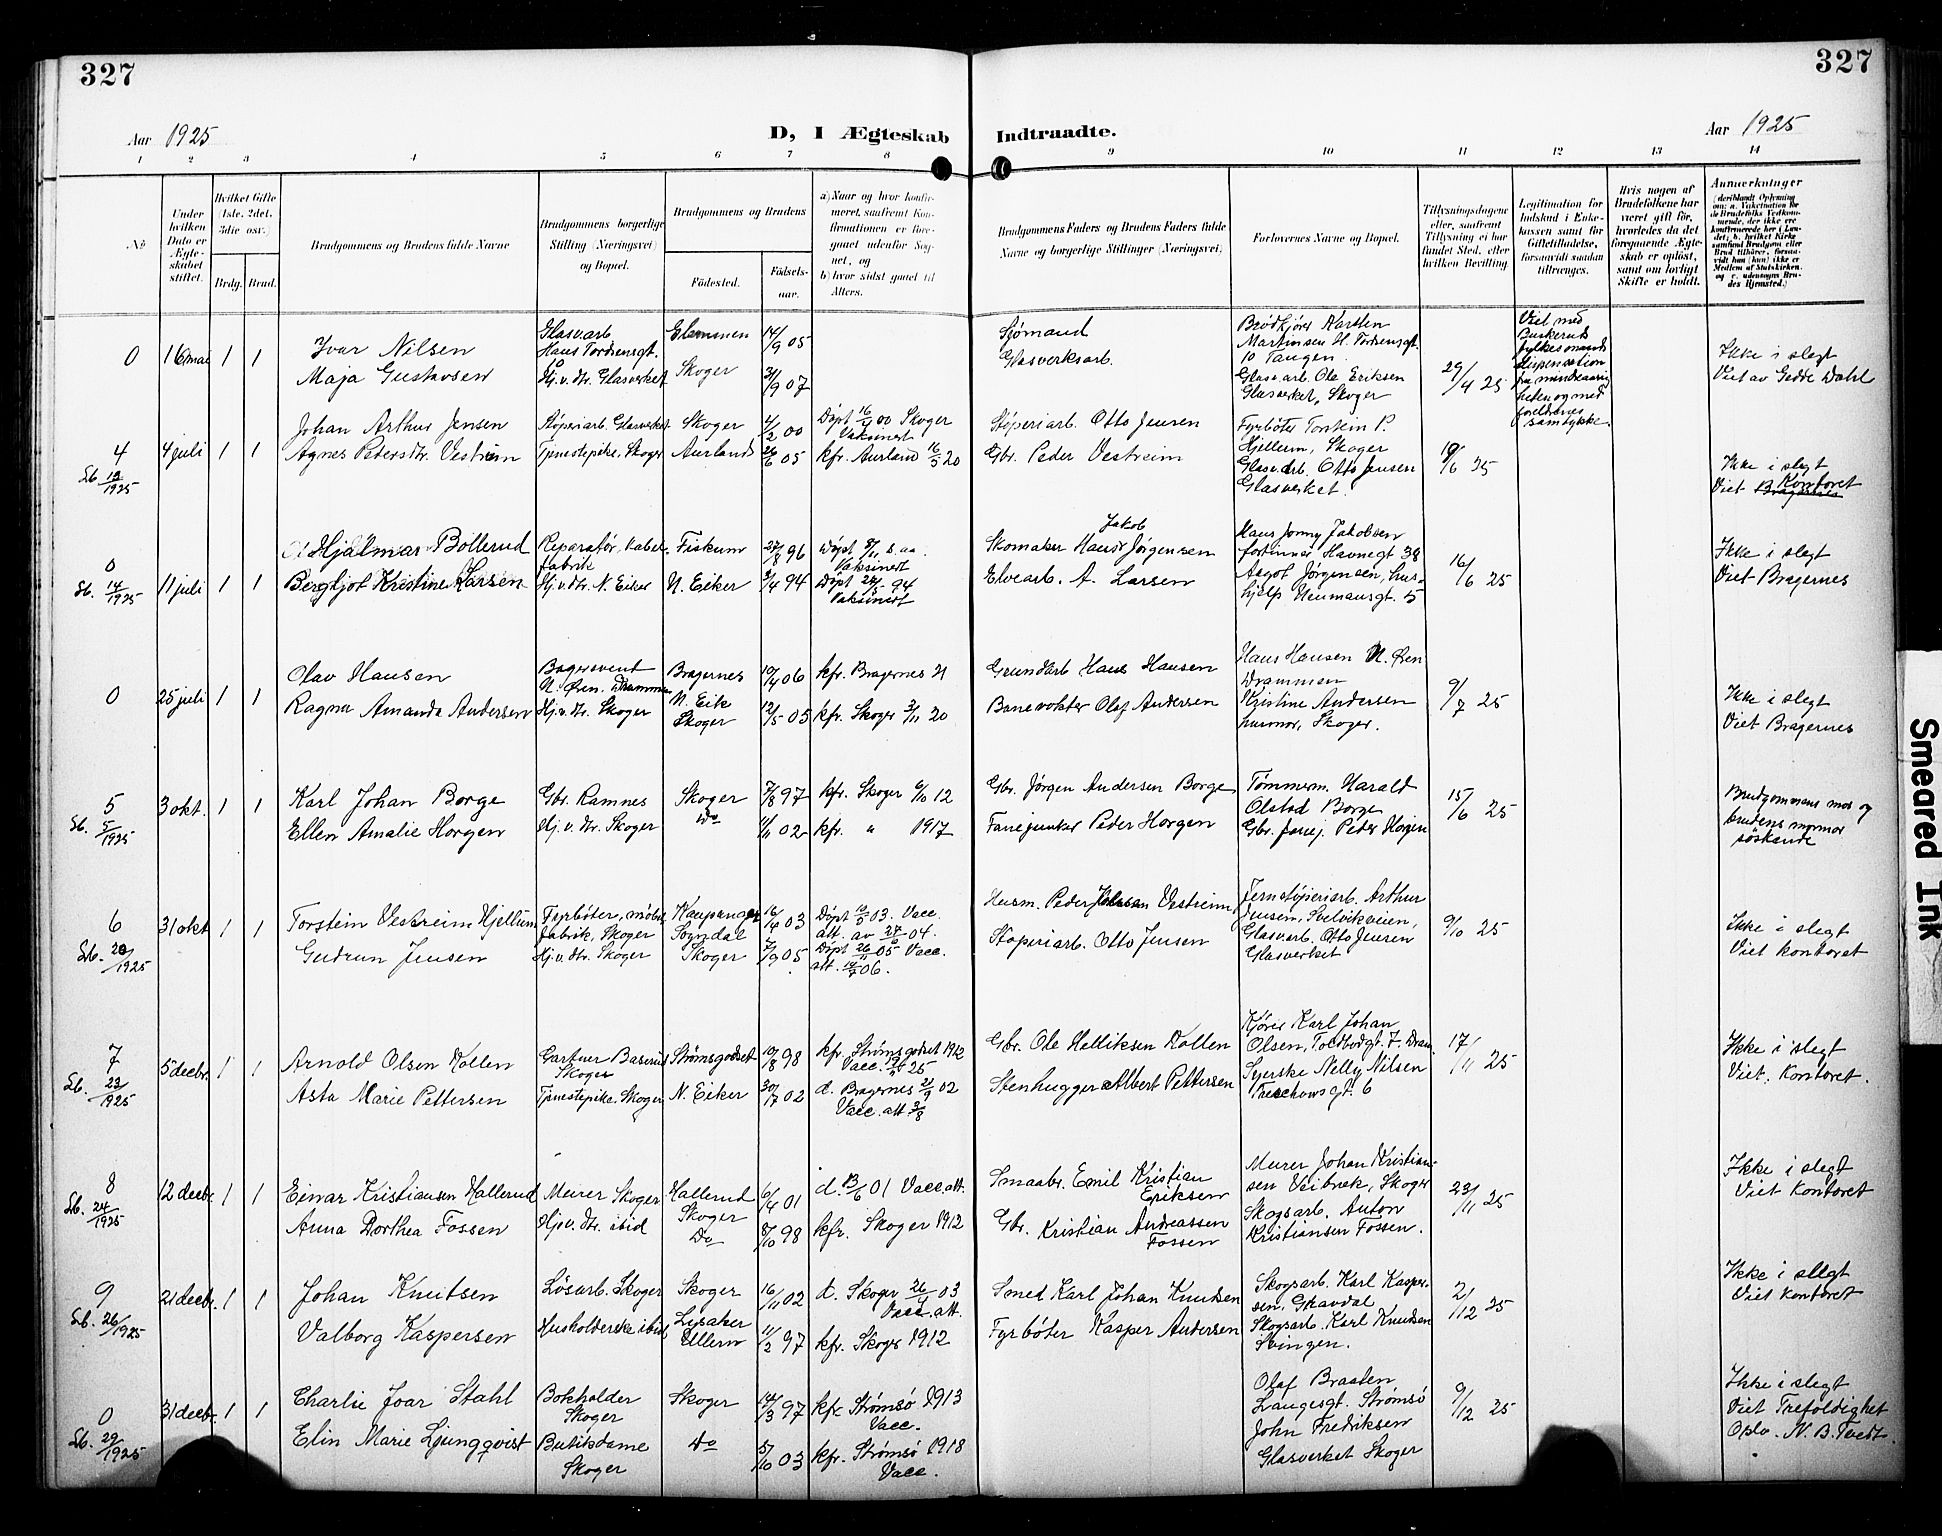 327
327
Aar 1925
D, I Ægteskab Indtraadte.
Aar 1925
1 2 3 4 5 6 7 8 9 10 11 12 13 14
No
Under hvilken Dato er Ægteskabet stiftet.
Hvilket Gifte (1ste, 2det, 3die osv.)
Brdg. Brud.
Brudgommens og Brudens fulde Navne
Brudgommens borgerlige Stilling (Næringsvei) og Bopæl.
Brudgommens og Brudens
Födested.
Födselsaar.
a) Naar og hvor konfirmeret, saafremt Konfirmationen er foregaaet udenfor Sognet, og
b) hvor sidst gaaet til Alters.
Brudgommens Faders og Brudens Faders fulde Navne og borgerlige Stillinger (Næringsvei)
Forlovernes Navne og Bopæl.
Tillysningsdagene eller, saafremt Tillysning ei har fundet Sted, efter hvilken Bevilling.
Legitimation for Indskud i Enkekassen samt for Giftetilladelse, forsaavidt saadan tiltrænges.
Hvis nogen af Brudefolkene har været gift för, hvorledes da det foregaaende Ægteskab er oplöst, samt om lovligt Skifte er holdt.
Anmærkninger
(deriblandt Oplysning om: a. Vakcination for de Brudefolks Vedkommende, der ikke ere konfirmerede her i Landet; b. hvilket Kirkesamfund Brudgom eller Brud tilhörer, forsaavidt han (hun) ikke er Medlem af Statskirken, og c. udensogns Brudes Hjemsted.)
0 16 mai 1 1
Ivar Nilsen
Maja Gustavsen
Glasvarb
Hans Tordsensgt.
10
Hj.v.dr. Glasverket
Glemmen 14/9 05
Skoger 31/9 07
Sjømand
Glasverksarb.
Brødkjører Karsten
Martinsen H. Tordsensgt.
10 Tangen.
Glasv arb. Ole Eriksen
Glasverket, Skoger
29/4 25
Viet med
Buskeruds
fylkesmands
dispensation
fra mindreaarig
heten og med
foreldrenes
samtykke.
Ikke i slegt
Viet av Gedde Dahl
4 4 juli 1 1
Lb. 12/1925
Johan Arthur Jensen
Agnes Petersdtr. Vestreim
Støperiarb. Glasverket Skoger 4/2 00
Tjenestepike, Skoger Aurland 26/6 05
Døpt 16/4 00 Skoger
Vaksinert
kfr. Aurland 16/5 20
Støperiarb. Otto Jensen
Gbr. Peder Vestreim
Fyrbøter Torstein P.
Hjellum, Skoger
Glasv.arb. Otto Jensen
Glasverket.
/6 25
Ikke i slegt
Viet Kontoret
0 11 juli 1 1
Lb. 14/1925
Hjalmar Bøllerud
Bergljot Kristine Larsen
Reparatør, kabel
fabrik
Hj.v.dr. N. Eiker
Fiskum 27/8 96
N. Eiker 3/4 94
Døpt 8/11 s. aa.
Vaksinert
Døpt 27/5 94
Vaksinert
Jakob
Skomaker Hans Jørgensen
Elvearb. A. Larsen
Hans Jonny Jakobsen
fortinner Havnegt 38
Aagot Jørgensen, hus-
hjelp Neumansgt. 5
16/6 25
Ikke i slegt
Viet Bragernes
0 25 juli 1 1
Olav Hansen
Ragna Amanda Andersen
Bagersvent
N. Øren. Drammen
Hj.v.dr. Skoger
Bragernes 19/4 06
N. Eik
Skoger 12/5 05
kfr. Bragernes 21
kfr. Skoger 3/11 20
Grundarb Hans Hansen
Banevokter Olaf Andersen
Hans Hansen N. Øren
Drammen
Kristine Andersen
husmor, Skoger.
9/7 25
Ikke i slegt
Viet Bragernes
5 3 okt. 1 1
Lb. 5/1925
Karl Johan Borge
Ellen Amalie Horgen
Gbr. Ramnes Skoger 7/8 97
Hj.v.dr. Skoger Do 11/11 02
kfr. Skoger 6/10 12
kfr. " 1917
Gbr. Jørgen Andersen Borge
Fanejunker Peder Horgen
Tømmerm. Harald
Olstad Borge
Gbr. fanej. Peder Horgen
15/6 25
Brudgommens mor og
brudens mormor
søskende
6 31 okt 1 1
Lb. 20/1925
Torstein Vestreim Hjellum
Gudrun Jensen
Fyrbøter, møbel
fabrik, Skoger
Hj.v.dr. Skoger
Kaupanger
Sogndal 16/4 03
Skoger 7/9 05
Døpt 10/5 03. Vacc.
att. av 27/6 04.
Døpt 26/11 05 Vacc.
att. 14/7 06.
Husm. Peder Johnsen Vestreim
Støperiarb. Otto Jensen
Jernstøperiarb. Arthur
Jensen, Svelvikveien,
Glasv.arb. Otto Jensen
Glasverket
9/10 25
Ikke i slegt
Viet kontoret
7 5 decbr. 1 1
Lb. 23/1925
Arnold Olsen Kollen
Asta Marie Pettersen
Gartner Baserud
Skoger
Tjenestepike. Skoger
Strømsgodset 19/8 98
N. Eiker 30/17 02
kfr. Strømsgodset 1912
Vacc. 19/11 25
d. Bragernes 21/9 02
Vacc. att 3/8
Gbr. Ole Helliksen Kollen
Stenhugger Albert Pettersen
Kjører Karl Johan
Olsen, Toldbodgt. 7. Dram.
Syerske Nelly Nilsen
Treschowsgt. 6
17/11 25
Ikke i slegt
Viet. Kontoret.
8 12 decbr. 1 1
Lb. 24/1925
Einar Kristiansen Hallerud
Anna Dorthea Fossen
Murer Skoger
Hj.v.dr. ibid
Hallerud
Skoger 6/4 01
Do 8/10 98
d. 13/6 01 Vacc. att.
kfr. Skoger 1912
Smaabr. Emil Kristian
Eriksen
Gbr. Kristian Andreassen
Fossen
Murer Johan Kristian-
sen Veibruk, Skoger
Skogsarb. Anton
Kristiansen Fossen.
23/11 25
Ikke i slegt
Viet kontoret
9 21 decbr. 1 1
Lb. 26/1925
Johan Knutsen
Valborg Kaspersen
Løsarb. Skoger Skoger 16/11 02
Husholderske ibid. Lysaker
Ullern 11/2 97
d. Skoger 26/4 03
Vacc. att.
kfr. Skoger 1912
Smed Karl Johan Knudsen
Fyrbøter Kasper Andersen
Skogsarb. Karl Kasper-
sen, Gravdal
Skogsarb. Karl Knudsen
Svingen.
2/12 25
Ikke i slegt
Viet kontoret
0 31 decbr. 1 1
Lb. 29/1925
Charlie Joar Stahl
Elin Marie Ljungqvist
Bokholder
Skoger
Butikdame
Skoger
Skoger 14/3 97
Do 5/10 03
kfr. Strømsø 1913
Vacc.
kfr. Strømsø 1918
Vacc.
Olaf Braaten
Langesgt. Strømsø
John Fredriksen
Glasverket Skoger
9/12 25
Ikke i slegt
Viet Trefoldighet
Oslo. N. B. Tvedt.
Smeared Ink